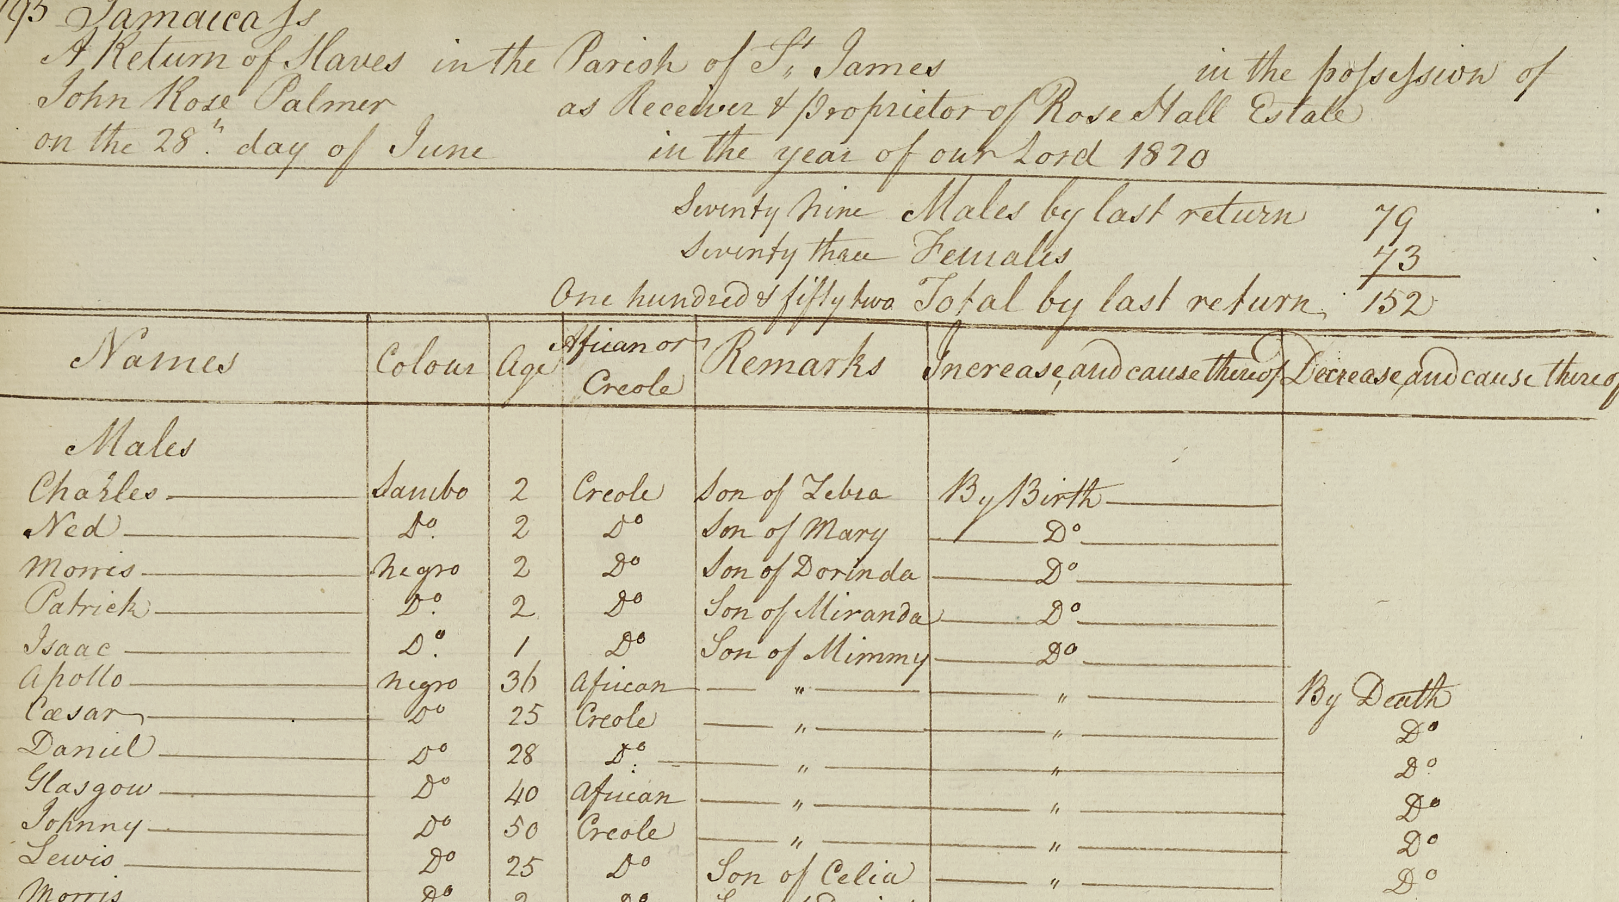 195 Jamaica Ss
A Return of Slaves in the Parish of St. James in the possession of
John Rose Palmer as Receiver & proprietor of Rose Hall Estate
on the 28th. day of June in the year of our Lord 1820
Seventy nine Males by last return 79
Seventy three Females 73
One hundred & fifty two Total by last return, 152
Names Colour Age African or Creole Remarks Increase, and cause thereof Decrease, and cause thereof
Males
Charles Sambo 2 Creole Son of Zebra By Birth
Ned Do. 2 Do Son of Mary Do
Morris Negro 2 Do Son of Dorinda Do
Patrick Do. 2 Do Son of Miranda Do
Isaac Do. 1 Do Son of Mimmy Do
Apollo Negro 36 African " " By Death
Cæsar Do 25 Creole " " Do
Daniel Do 28 Do. " " Do.
Glasgow Do 40 African " " Do
Johnny Do 50 Creole " " Do
Lewis Do 25 Do Son of Celia " Do
Morris Do 2 Do Son of